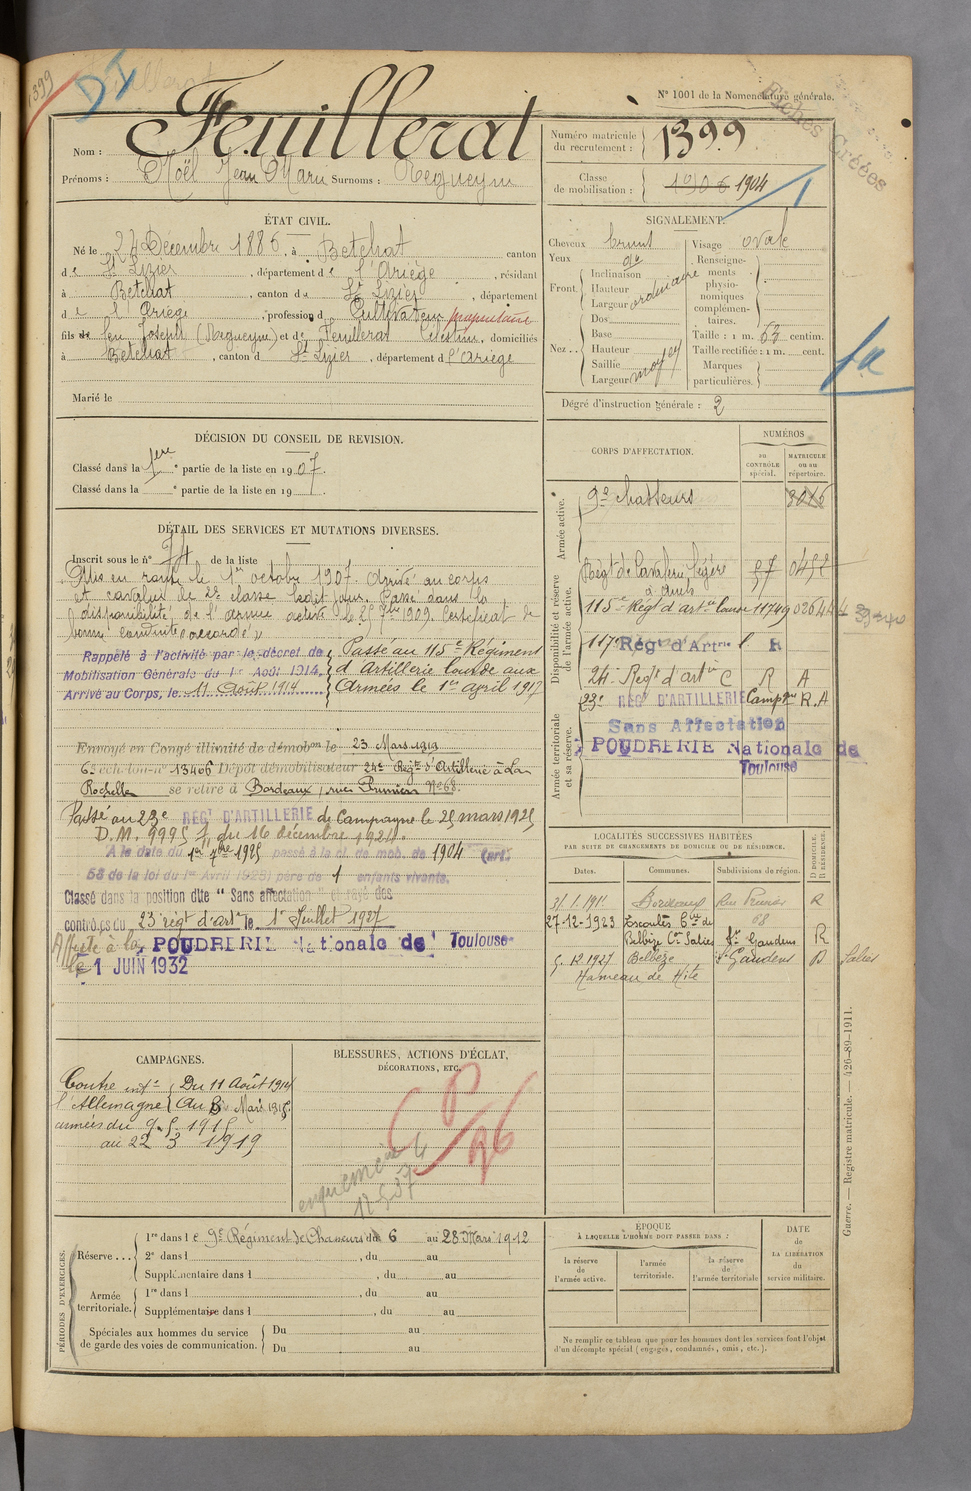 1399
D I
N° 1001 de la Nomenclature générale.
Fiches Créées
Nom : Feuillerat
Prénoms : Noël Jean Marie Surnoms : Regueym
Numéro matricule du recrutement : 1399
Classe de mobilisation : 1906 1904
ÉTAT CIVIL.
Né le 24 Décembre 1886, à Betchat canton
de St Lizier, département de l'Ariège, résidant
à Betchat, canton de St Lizier, département
de l'Ariège, profession de Cultivateur propriétaire
fils de feu Joseph (Regueym) et de Feuillerat Célestine, domiciliés
à Betchat, canton de St Lizier, département de l'Ariège
Marié le
SIGNALEMENT.
Cheveux bruns
Yeux do
Front. Inclinaison
Hauteur ordinaire
Largeur
Nez . . Dos
Base
Hauteur
Saillie moyen
Largeur
Visage ovale
Renseignements physionomiques complémentaires.
Taille : 1 m. 63 centim.
Taille rectifiée : 1 m. cent.
Marques particulières.
Dégré d'instruction générale : 2
DÉCISION DU CONSEIL DE REVISION.
Classé dans la 1ere partie de la liste en 1907.
Classé dans la e partie de la liste en 19 .
DÉTAIL DES SERVICES ET MUTATIONS DIVERSES.
Inscrit sous le n° 74 de la liste
Mis en route le 1er octobre 1907. Arrivé au corps
et cavalier de 2e classe ledit jour. Passé dans la
disponibilité de l'armée active le 25 7bre 1909. Certificat de
bonne conduite accordé
Rappelé à l'activité par le décret de
Mobilisation Générale du 1er Août 1914.
Arrivé au Corps, le 11 Août 1914
Passé au 115e Régiment
d'Artillerie lourde aux
Armées le 1er april 1917
Envoyé en Congé illimité de démobon le 23 Mars 1919
6e échelon n° 13406 Dépot démobilisateur 24e Regt d'Artillerie à La
Rochelle se retire à Bordeaux, rue Prunier N° 68.
Passé au 23e REGt D'ARTILLERIE de Campagne le 25 mars 1925
D.M. 9995 du 16 décembre 1924.
A la date du 1er 7bre 1925 passé à la cl. de mob. de 1904 (art.
58 de la loi du 1er Avril 1923) père de 1 enfants vivants.
Classé dans la position dite "Sans affectation" et rayé des
contrôles du 23 régt d'art le 1er Juillet 1927
Affecté à la POUDRERIE Nationale de Toulouse
le 1 JUIN 1932
CORPS D'AFFECTATION.
NUMÉROS
au CONTRÔLE spécial.
MATRICULE ou au répertoire.
Armée active.
9e chasseurs 3016
Disponibilité et réserve de l'armée active.
Régt de Cavalerie légère 57 0452
à Auch
115e Régt d'artie lourde 11749
117e Régt d'Artie l R
24 Regt d'artie C R A
Armée territoriale et sa réserve.
23e REGt D'ARTILLERIE Campgne R.A
Sans Affectation
POUDRERIE Nationale de
Toulouse
LOCALITÉS SUCCESSIVES HABITÉES
PAR SUITE DE CHANGEMENTS DE DOMICILE OU DE RÉSIDENCE.
Dates. Communes. Subdivisions de région. D DOMICILE. R RÉSIDENCE.
Bordeaux Rue Prunier R
68
27-12-1923 Escoulis Cne de
Belbèze Con Salies St Gaudens R
5.12.1927 Belbèze St Gaudens D Salies
Hameau de Hite
CAMPAGNES.
Contre
l'Allemagne
Du 11 Août 1914
au Mars 1915
armées du 9.5.1915
au 22 3 1919
BLESSURES, ACTIONS D'ÉCLAT,
DÉCORATIONS, ETC.
PÉRIODES D'EXERCICES.
Réserve . . . 1re dans le 9e Régiment de Chasseurs du 6 au 28 Mars 1912
2e dans l , du au
Supplémentaire dans l , du au
Armée territoriale. 1re dans l , du au
Supplémentaire dans l , du au
Spéciales aux hommes du service de garde des voies de communication. Du au
Du au
ÉPOQUE
À LAQUELLE L'HOMME DOIT PASSER DANS :
la réserve de l'armée active.
l'armée territoriale.
la réserve de l'armée territoriale
DATE de LA LIBÉRATION du service militaire.
Ne remplir ce tableau que pour les hommes dont les services font l'objet
d'un décompte spécial (engagés, condamnés, omis, etc.).
Guerre. — Registre matricule. — 426-89-1911.